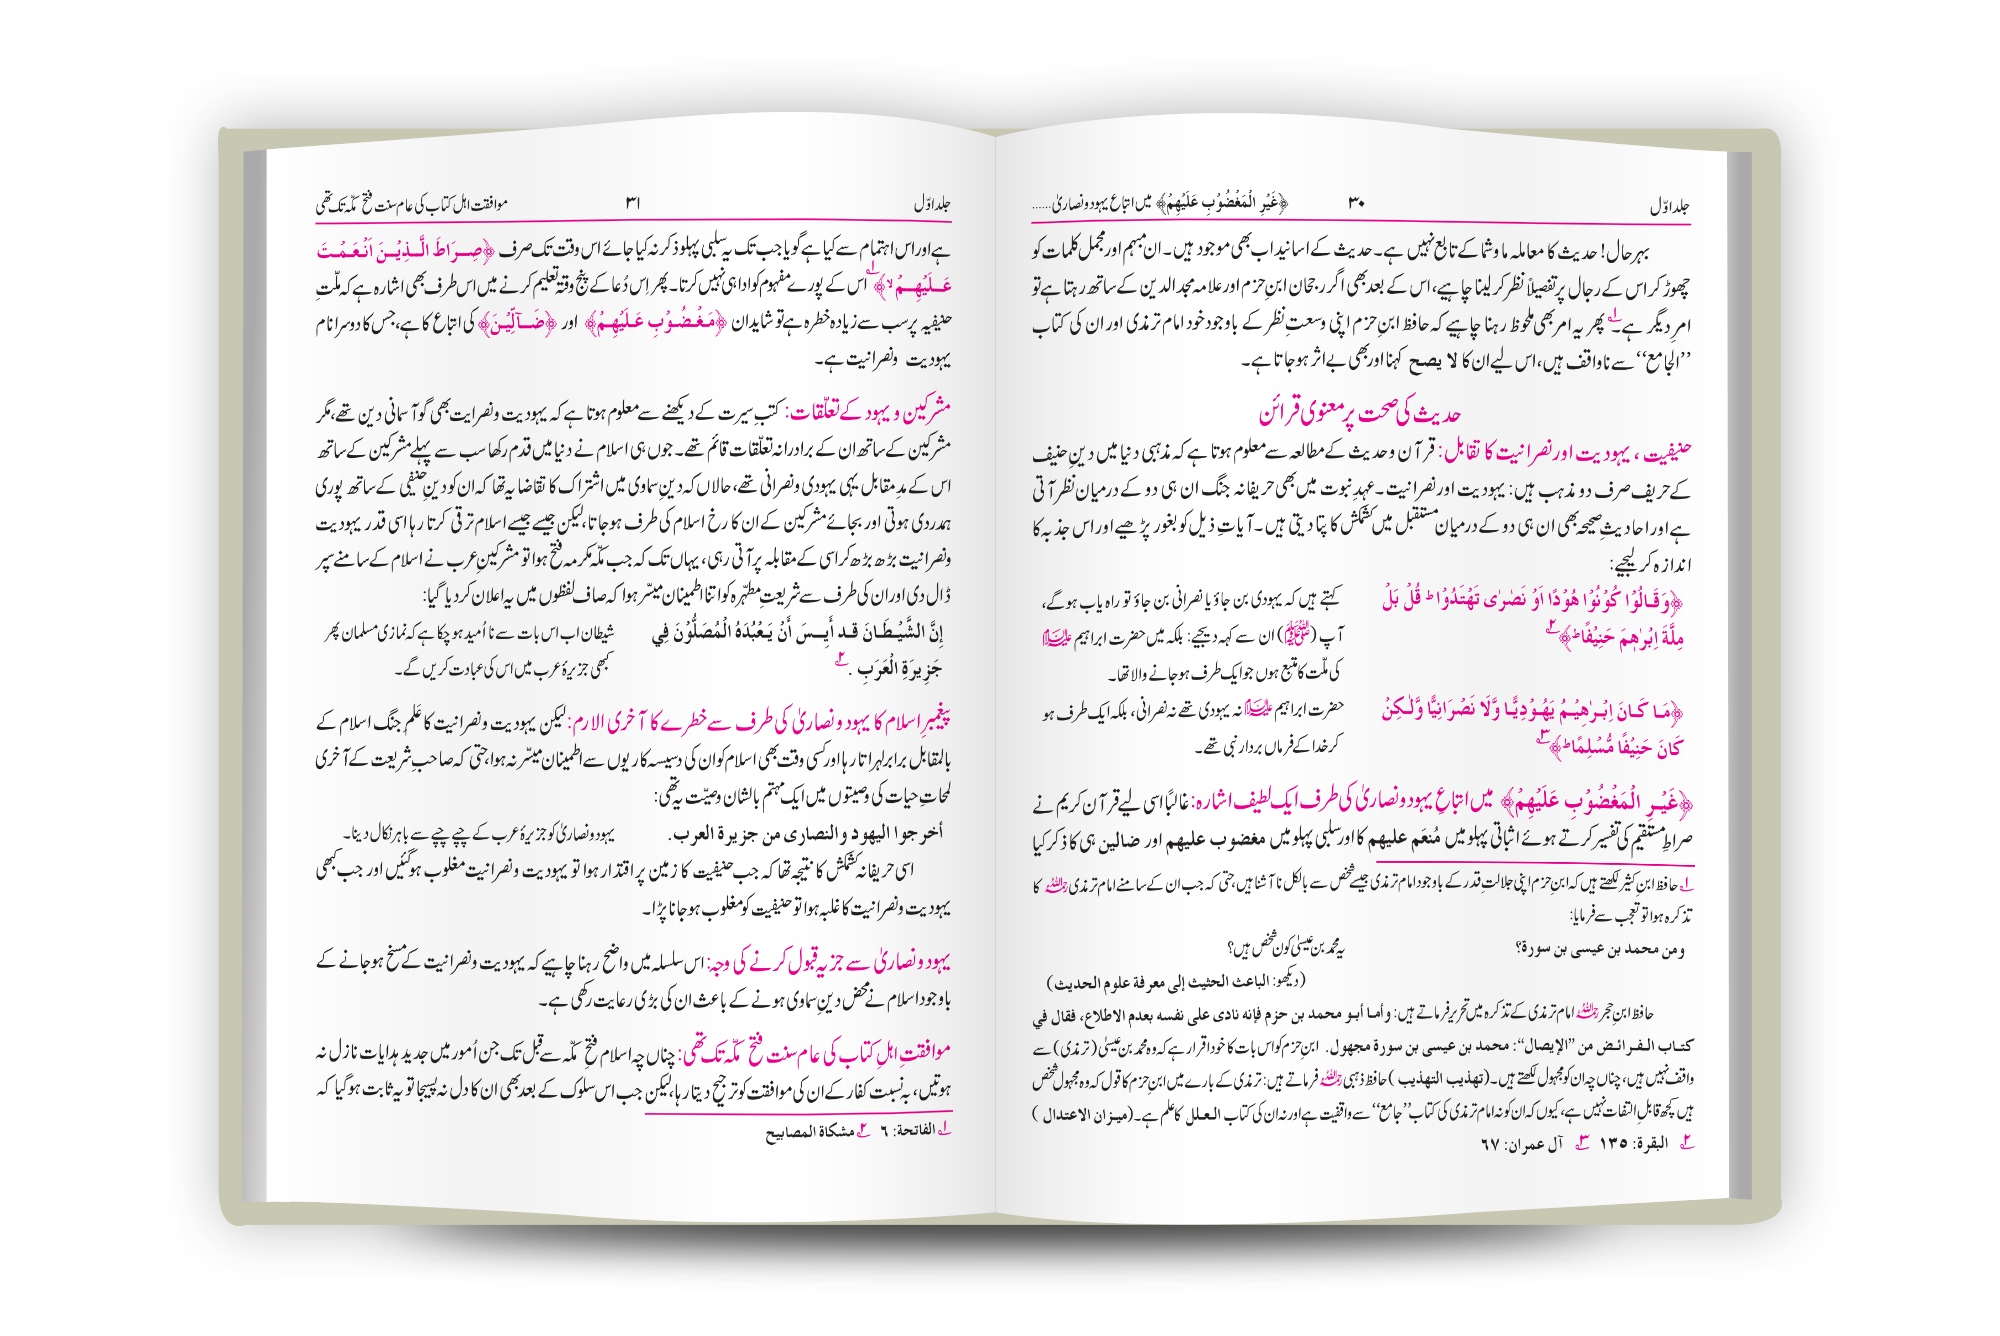 جلد اوّل ۳۰ ﴿غَيْرِ الْمَغْضُوْبِ عَلَيْهِمْ﴾ میں اتباع یہود و نصاریٰ......
بہر حال! حدیث کا معاملہ ما و شما کے تابع نہیں ہے۔ حدیث کے اسانید اب بھی موجود ہیں۔ ان مبہم اور مجمل کلمات کو
چھوڑ کر اس کے رجال پر تفصیلاً نظر کر لینا چاہیے، اس کے بعد بھی اگر رجحان ابنِ حزم اور علامہ مجد الدین کے ساتھ رہتا ہے تو
امر دیگر ہے۔ۓ پھر یہ امر بھی ملحوظ رہنا چاہیے کہ حافظ ابنِ حزم اپنی وسعتِ نظر کے باوجود خود امام ترمذی اور ان کی کتاب
”الجامع“ سے ناواقف ہیں، اس لیے ان کا لا يصح کہنا اور بھی بے اثر ہو جاتا ہے۔
حدیث کی صحت پر معنوی قرائن
حنیفیت، یہودیت اور نصرانیت کا تقابل: قرآن و حدیث کے مطالعہ سے معلوم ہوتا ہے کہ مذہبی دنیا میں دینِ حنیف
کے حریف صرف دو مذہب ہیں: یہودیت اور نصرانیت۔ عہدِ نبوت میں بھی حریفانہ جنگ ان ہی دو کے درمیان نظر آتی
ہے اور احادیثِ صحیحہ بھی ان ہی دو کے درمیان مستقبل میں کشمکش کا پتا دیتی ہیں۔ آیاتِ ذیل کو بغور پڑھیے اور اس جذبہ کا
اندازہ کر لیجیے:
﴿وَقَالُوْا كُوْنُوْا هُوْدًا اَوْ نَصٰرٰى تَهْتَدُوْا ؕ قُلْ بَلْ کہتے ہیں کہ یہودی بن جاؤ یا نصرانی بن جاؤ تو راہ یاب ہو گے،
مِلَّةَ اِبْرٰهٖمَ حَنِيْفًا ؕ﴾۲ آپ (ﷺ) ان سے کہہ دیجیے: بلکہ میں حضرت ابراہیم علیہ السلام
کی ملّت کا متبع ہوں جو ایک طرف ہو جانے والا تھا۔
﴿مَا كَانَ اِبْرٰهِيْمُ يَهُوْدِيًّا وَّلَا نَصْرَانِيًّا وَّلٰكِنْ حضرت ابراہیم علیہ السلام نہ یہودی تھے نہ نصرانی، بلکہ ایک طرف ہو
كَانَ حَنِيْفًا مُّسْلِمًا ؕ﴾۳ کر خدا کے فرماں بردار نبی تھے۔
﴿غَيْرِ الْمَغْضُوْبِ عَلَيْهِمْ﴾ میں اتباعِ یہود و نصاریٰ کی طرف ایک لطیف اشارہ: غالباً اسی لیے قرآن کریم نے
صراطِ مستقیم کی تفسیر کرتے ہوئے اثباتی پہلو میں مُنعَم عليهم کا اور سلبی پہلو میں مغضوب عليهم اور ضالين ہی کا ذکر کیا
۱ حافظ ابنِ کثیر لکھتے ہیں کہ ابنِ حزم اپنی جلالتِ قدر کے باوجود امام ترمذی جیسے شخص سے بالکل نا آشنا ہیں حتی کہ جب ان کے سامنے امام ترمذی رحمہ اللہ کا
تذکرہ ہوا تو تعجب سے فرمایا:
ومن محمد بن عيسى بن سورة؟ یہ محمد بن عیسیٰ کون شخص ہیں؟
(دیکھو: الباعث الحثيث إلى معرفة علوم الحديث)
حافظ ابنِ حجر رحمہ اللہ امام ترمذی کے تذکرہ میں تحریر فرماتے ہیں: وأما أبو محمد بن حزم فإنه نادى على نفسه بعدم الاطلاع، فقال في
كتاب الفرائض من ”الإيصال“: محمد بن عيسى بن سورة مجهول. ابنِ حزم کو اس بات کا خود اقرار ہے کہ وہ محمد بن عیسیٰ (ترمذی) سے
واقف نہیں ہیں، چناں چہ ان کو مجہول لکھتے ہیں۔ (تهذيب التهذيب) حافظ ذہبی رحمہ اللہ فرماتے ہیں: ترمذی کے بارے میں ابنِ حزم کا قول کہ وہ مجہول شخص
ہیں کچھ قابلِ التفات نہیں ہے، کیوں کہ ان کو نہ امام ترمذی کی کتاب ”جامع“ سے واقفیت ہے اور نہ ان کی کتاب العلل کا علم ہے۔ (ميزان الاعتدال)
۲ البقرة: ۱۳۵ ۳ آل عمران: ۶۷
جلد اوّل ۳۱ موافقت اہل کتاب کی عام سنت فتحِ مکّہ تک تھی
ہے اور اس اہتمام سے کیا ہے گویا جب تک یہ سلبی پہلو ذکر نہ کیا جائے اس وقت تک صرف ﴿صِرَاطَ الَّذِيْنَ اَنْعَمْتَ
عَلَيْهِمْ ۙ﴾۱ اس کے پورے مفہوم کو ادا ہی نہیں کرتا۔ پھر اِس دُعا کے پنج وقتہ تعلیم کرنے میں اس طرف بھی اشارہ ہے کہ ملّتِ
حنیفیہ پر سب سے زیادہ خطرہ ہے تو شاید ان ﴿مَغْضُوْبِ عَلَيْهِمْ﴾ اور ﴿ضَآلِّيْنَ﴾ کی اتباع کا ہے، جس کا دوسرا نام
یہودیت ونصرانیت ہے۔
مشرکین و یہود کے تعلّقات: کتبِ سیرت کے دیکھنے سے معلوم ہوتا ہے کہ یہودیت ونصرایت بھی گو آسمانی دین تھے، مگر
مشرکین کے ساتھ ان کے برادرانہ تعلّقات قائم تھے۔ جوں ہی اسلام نے دنیا میں قدم رکھا سب سے پہلے مشرکین کے ساتھ
اس کے مدِ مقابل یہی یہودی ونصرانی تھے، حالاں کہ دینِ سماوی میں اشتراک کا تقاضا یہ تھا کہ ان کو دینِ حنیفی کے ساتھ پوری
ہمدردی ہوتی اور بجائے مشرکین کے ان کا رخ اسلام کی طرف ہو جاتا، لیکن جیسے جیسے اسلام ترقی کرتا رہا اسی قدر یہودیت
ونصرانیت بڑھ بڑھ کر اسی کے مقابلہ پر آتی رہی، یہاں تک کہ جب مکّہ مکرمہ فتح ہوا تو مشرکینِ عرب نے اسلام کے سامنے سپر
ڈال دی اور ان کی طرف سے شریعتِ مطہّرہ کو اتنا اطمینان میسّر ہوا کہ صاف لفظوں میں یہ اعلان کر دیا گیا:
إِنَّ الشَّيْطَانَ قَد أَيِسَ أَنْ يَعْبُدَهُ الْمُصَلُّوْنَ فِي شیطان اب اس بات سے نا اُمید ہو چکا ہے کہ نمازی مسلمان پھر
جَزِيرَةِ الْعَرَبِ .۲ کبھی جزیرۂ عرب میں اس کی عبادت کریں گے۔
پیغمبرِ اسلام کا یہود و نصاریٰ کی طرف سے خطرے کا آخری الارم: لیکن یہودیت ونصرانیت کا عَلَمِ جنگ اسلام کے
بالمقابل برابر لہراتا رہا اور کسی وقت بھی اسلام کو ان کی دسیسہ کاریوں سے اطمینان میسّر نہ ہوا، حتیٰ کہ صاحبِ شریعت کے آخری
لمحاتِ حیات کی وصیتوں میں ایک مہتم بالشان وصیّت یہ تھی:
أخرجوا اليهود والنصارى من جزيرة العرب. یہود ونصاریٰ کو جزیرۂ عرب کے چپے چپے سے باہر نکال دینا۔
اسی حریفانہ کشمکش کا نتیجہ تھا کہ جب حنیفیت کا زمین پر اقتدار ہوا تو یہودیت ونصرانیت مغلوب ہو گئیں اور جب کبھی
یہودیت ونصرانیت کا غلبہ ہوا تو حنیفیت کو مغلوب ہو جانا پڑا۔
یہود و نصاریٰ سے جزیہ قبول کرنے کی وجہ: اس سلسلہ میں واضح رہنا چاہیے کہ یہودیت ونصرانیت کے مسخ ہو جانے کے
باوجود اسلام نے محض دینِ سماوی ہونے کے باعث ان کی بڑی رعایت رکھی ہے۔
موافقتِ اہلِ کتاب کی عام سنت فتحِ مکّہ تک تھی: چناں چہ اسلام فتحِ مکّہ سے قبل تک جن اُمور میں جدید ہدایات نازل نہ
ہوتیں، بہ نسبت کفار کے ان کی موافقت کو ترجیح دیتا رہا، لیکن جب اس سلوک کے بعد بھی ان کا دل نہ پسیجا تو یہ ثابت ہو گیا کہ
۱ الفاتحة: ۶ ۲ مشكاة المصابيح